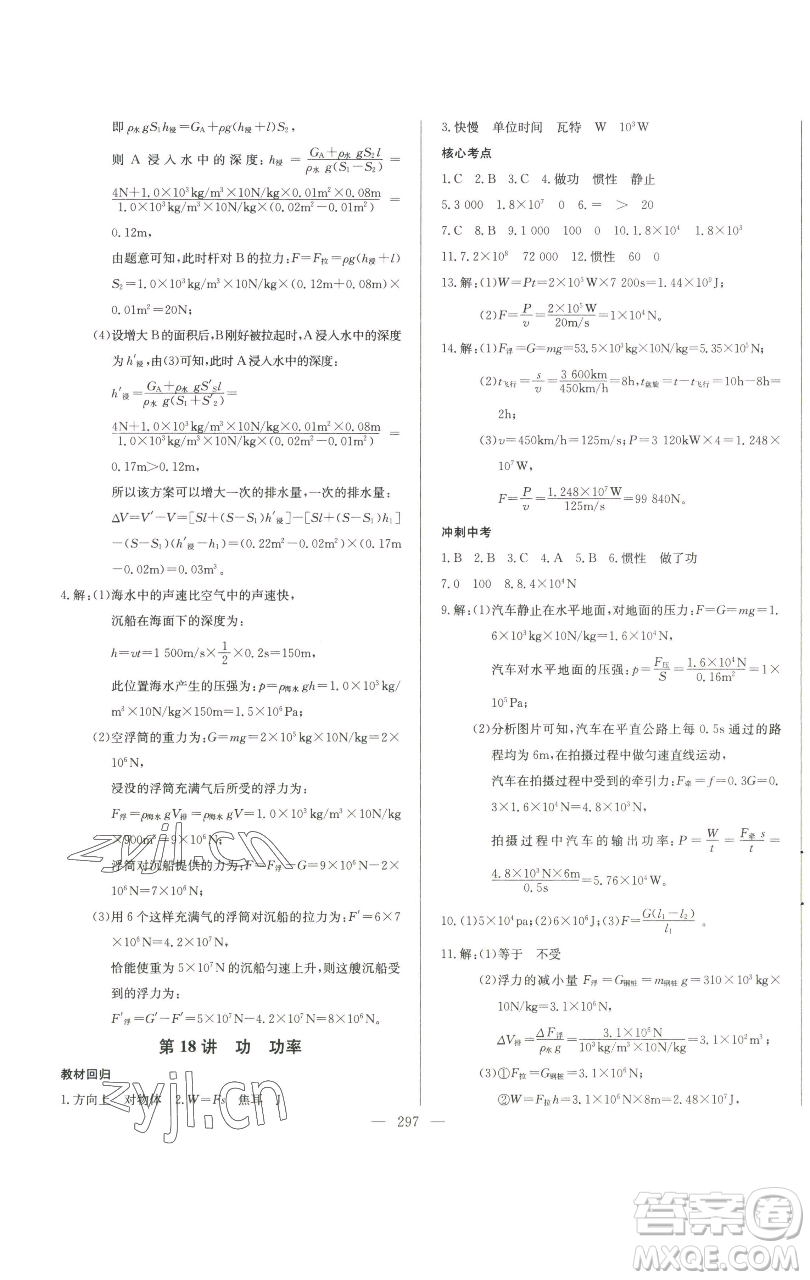 即ρ水gS₁h浸=G_A+ρg(h浸+l)S₂,
则 A 浸入水中的深度:h浸=(G_A+ρ水gS₂l)/(ρ水g(S₁-S₂))=
(4N+1.0×10³kg/m³×10N/kg×0.01m²×0.08m)/(1.0×10³kg/m³×10N/kg×(0.02m²-0.01m²))=
0.12m,
由题意可知,此时杆对 B 的拉力:F=F拉=ρg(h浸+l)
S₂=1.0×10³kg/m³×10N/kg×(0.12m+0.08m)×
0.01m²=20N;
(4)设增大 B 的面积后,B 刚好被拉起时,A 浸入水中的深度
为h′浸,由(3)可知,此时 A 浸入水中的深度:
h′浸=(G_A+ρ水gS′Sl)/(ρ水g(S₁+S′₂))=
(4N+1.0×10³kg/m³×10N/kg×0.01m²×0.08m)/(1.0×10³kg/m³×10N/kg×(0.02m²-0.01m²))=
0.17m>0.12m,
所以该方案可以增大一次的排水量,一次的排水量:
ΔV=V′-V=[Sl+(S-S₁)h′浸]-[Sl+(S-S₁)h₁]
-(S-S₁)(h′浸-h₁)=(0.22m²-0.02m²)×(0.17m-
0.02m)=0.03m³。
4.解:(1)海水中的声速比空气中的声速快,
沉船在海面下的深度为:
h=vt=1 500m/s×1/2×0.2s=150m,
此位置海水产生的压强为:p=ρ海水gh=1.0×10³kg/
m³×10N/kg×150m=1.5×10⁶Pa;
(2)空浮筒的重力为:G=mg=2×10⁵kg×10N/kg=2×
10⁶N,
浸没的浮筒充满气后所受的浮力为:
F浮=ρ海水gV排=ρ海水gV筒=1.0×10³kg/m³×10N/kg
×900m³=9×10⁶N;
浮筒对沉船提供的力为:F=F浮-G=9×10⁶N-2×
10⁶N=7×10⁶N;
(3)用 6 个这样充满气的浮筒对沉船的拉力为:F′=6×7
×10⁶N=4.2×10⁷N,
恰能使重为 5×10⁷N 的沉船匀速上升,则这艘沉船所受
到的浮力为:
F′浮=G′-F′=5×10⁷N-4.2×10⁷N=8×10⁶N。
第 18 讲 功 功率
教材回归
1.方向上 对物体 2.W=Fs 焦耳 J
3.快慢 单位时间 瓦特 W 10³W
核心考点
1.C 2.B 3.C 4.做功 惯性 静止
5.3 000 1.8×10⁷ 0 6.= > 20
7.C 8.B 9.1 000 100 0 10.1.8×10⁴ 1.8×10³
11.7.2×10⁸ 72 000 12.惯性 60 0
13.解:(1)W=Pt=2×10⁵W×7 200s=1.44×10⁹J;
(2)F=P/v=(2×10⁵W)/(20m/s)=1×10⁴N。
14.解:(1)F浮=G=mg=53.5×10³kg×10N/kg=5.35×10⁵N;
(2)t飞行=s/v=(3 600km)/(450km/h)=8h,t盘旋=t-t飞行=10h-8h=
2h;
(3)v=450km/h=125m/s;P=3 120kW×4=1.248×
10⁷W,
F=P/v=(1.248×10⁷W)/(125m/s)=99 840N。
冲刺中考
1.B 2.B 3.C 4.A 5.B 6.惯性 做了功
7.0 100 8.8.4×10⁴N
9.解:(1)汽车静止在水平地面,对地面的压力:F=G=mg=1.
6×10³kg×10N/kg=1.6×10⁴N,
汽车对水平地面的压强:p=F压/S=(1.6×10⁴N)/(0.16m²)=1×
10⁵Pa;
(2)分析图片可知,汽车在平直公路上每 0.5s 通过的路
程均为 6m,在拍摄过程中做匀速直线运动,
汽车在拍摄过程中的牵引力:F牵=f=0.3G=0.
3×1.6×10⁴N=4.8×10³N,
拍摄过程中汽车的输出功率:P=W/t=F牵s/t=
(4.8×10³N×6m)/(0.5s)=5.76×10⁴W。
10.(1)5×10⁴pa;(2)6×10⁵J;(3)F=G(l₁-l₂)/l₁。
11.解:(1)等于 不受
(2)浮力的减小量 F浮=G钢桩=m钢桩g=310×10³kg×
10N/kg=3.1×10⁶N,
ΔV排=ΔF浮/(ρ水g)=(3.1×10⁶N)/(10³kg/m³×10N/kg)=3.1×10²m³;
(3)①F拉=G钢桩=3.1×10⁶N;
②W=F拉h=3.1×10⁶N×8m=2.48×10⁷J,
— 297 —
zyjl.cn
zyjl.cn
答案圈
MXQE.COM